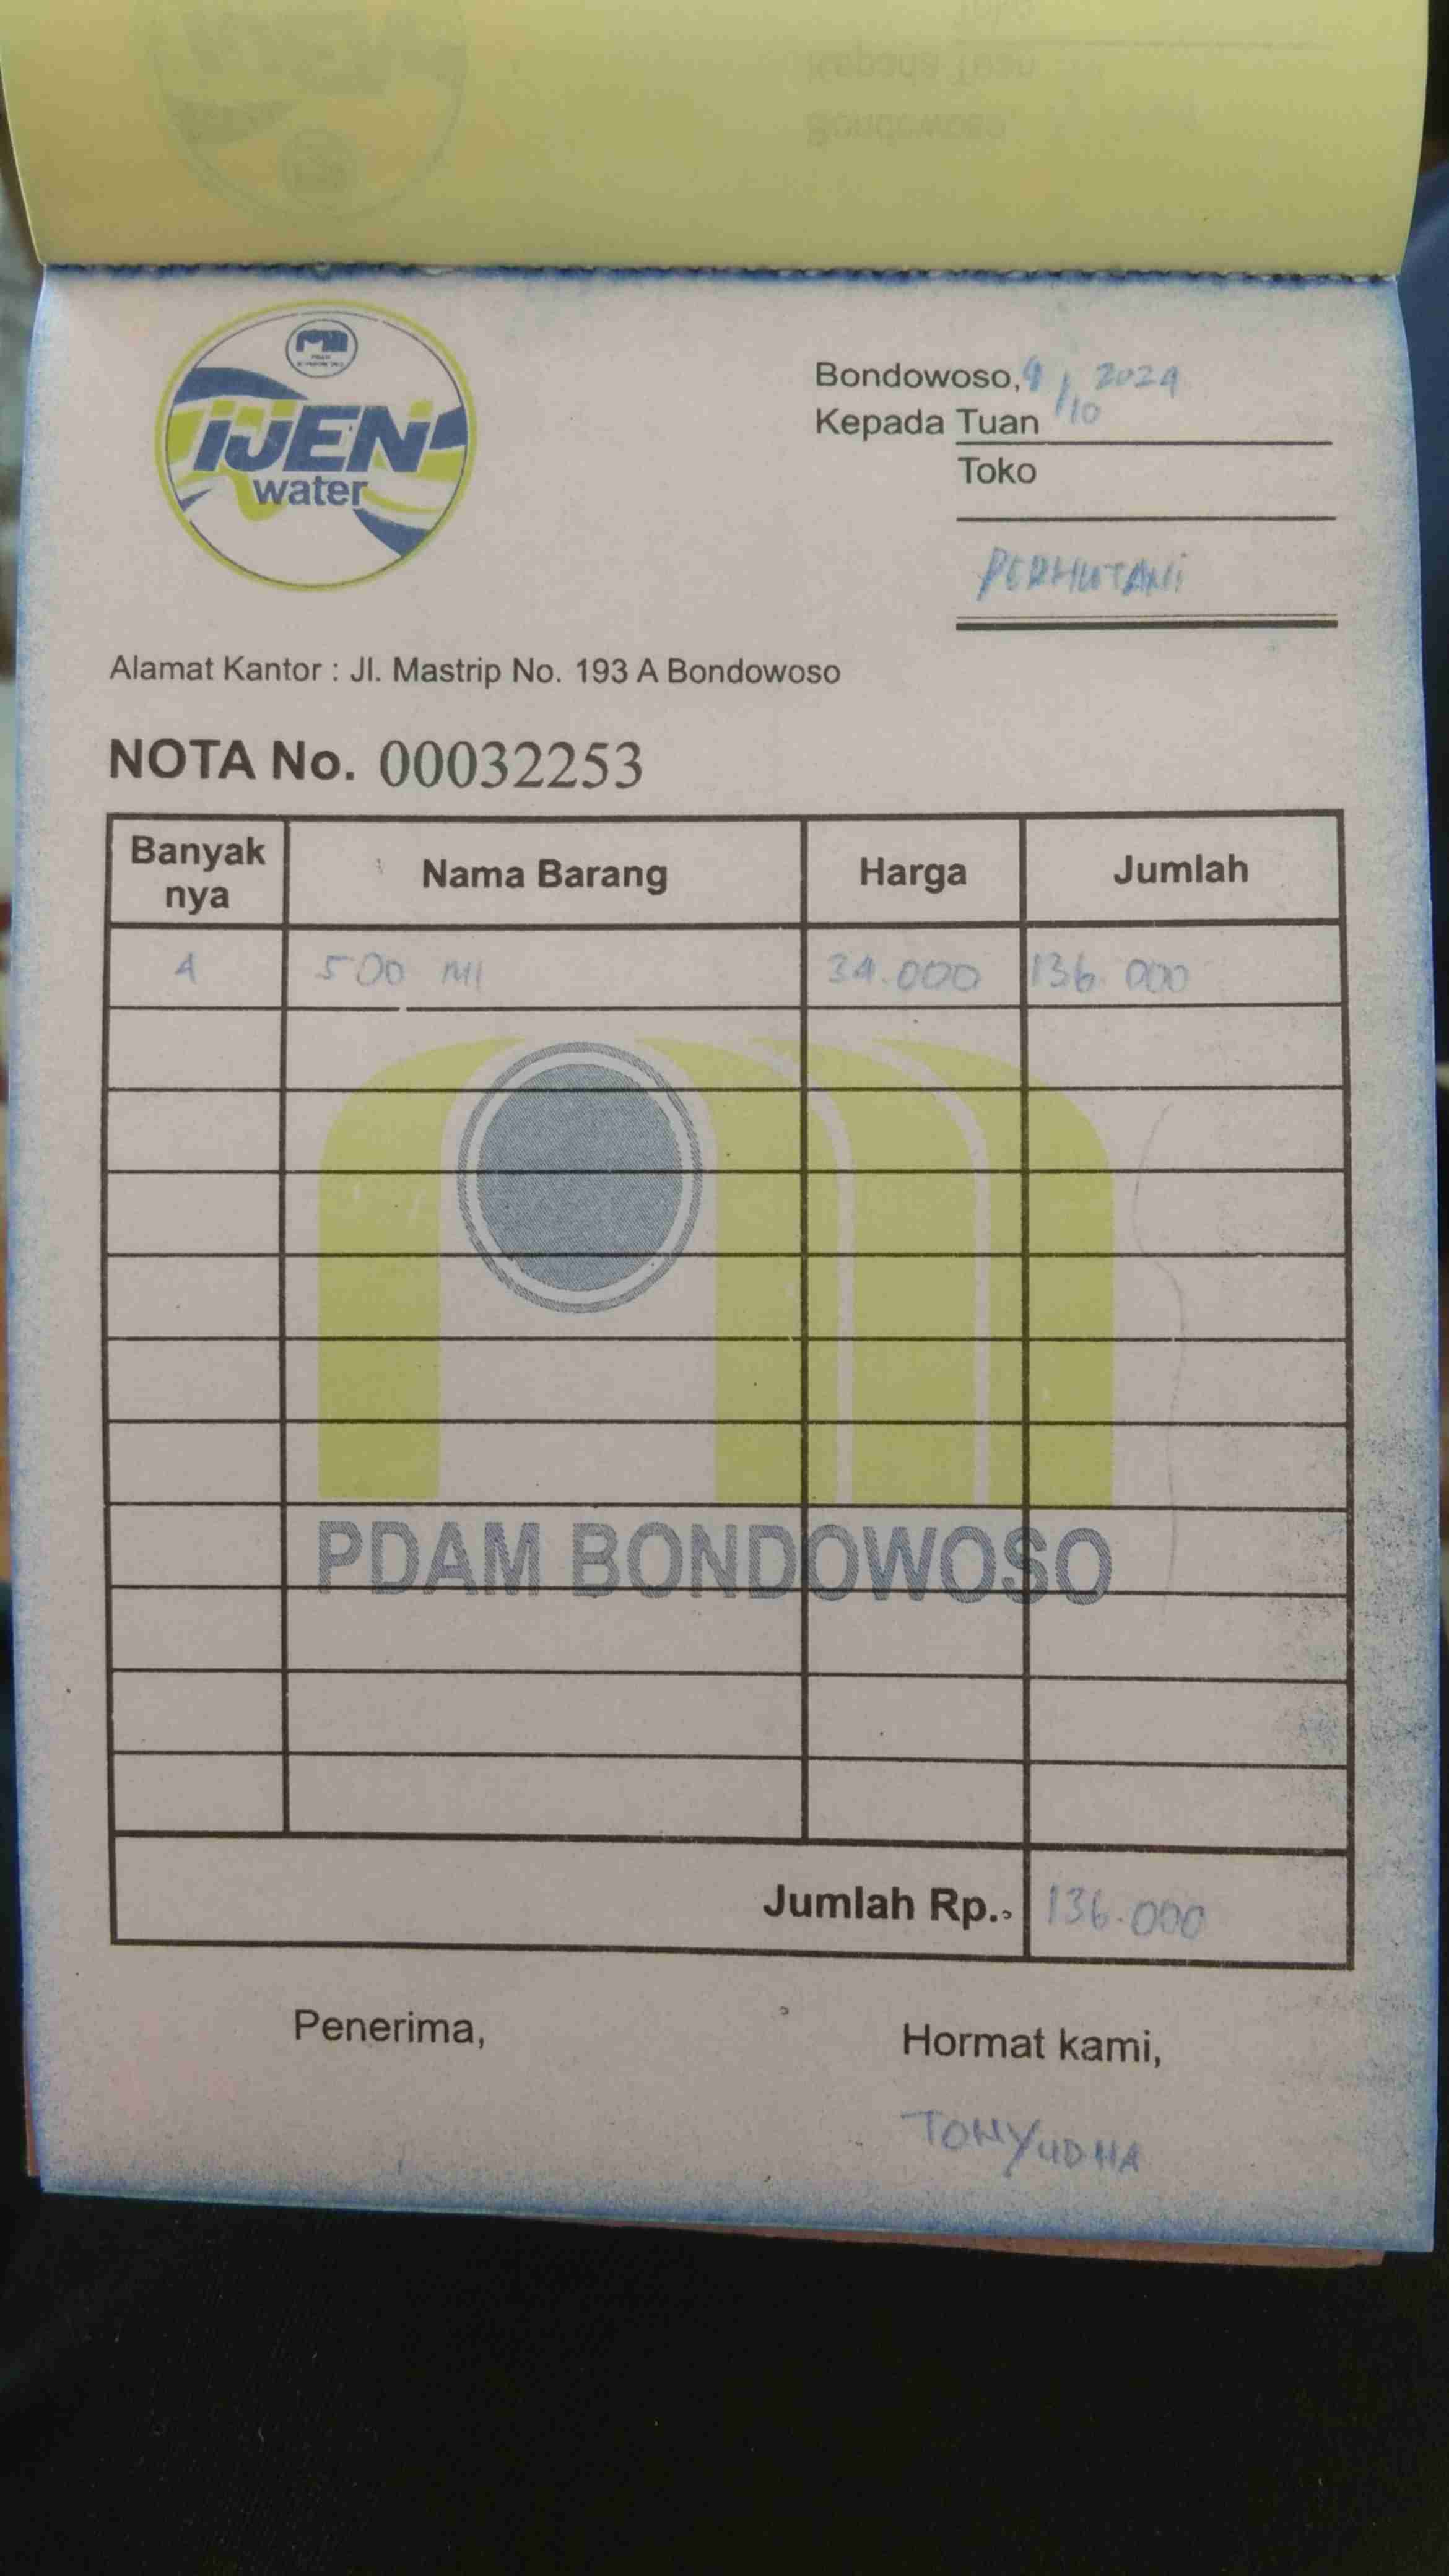 IJEN
water
Bondowoso, 9/10 2024
Kepada Tuan
Toko
PERHUTANI
Alamat Kantor : Jl. Mastrip No. 193 A Bondowoso
NOTA No. 00032253
Banyak nya Nama Barang Harga Jumlah
4 500 Ml 34.000 136.000
PDAM BONDOWOSO
Jumlah Rp. 136.000
Penerima, Hormat kami,
TONYUDHA